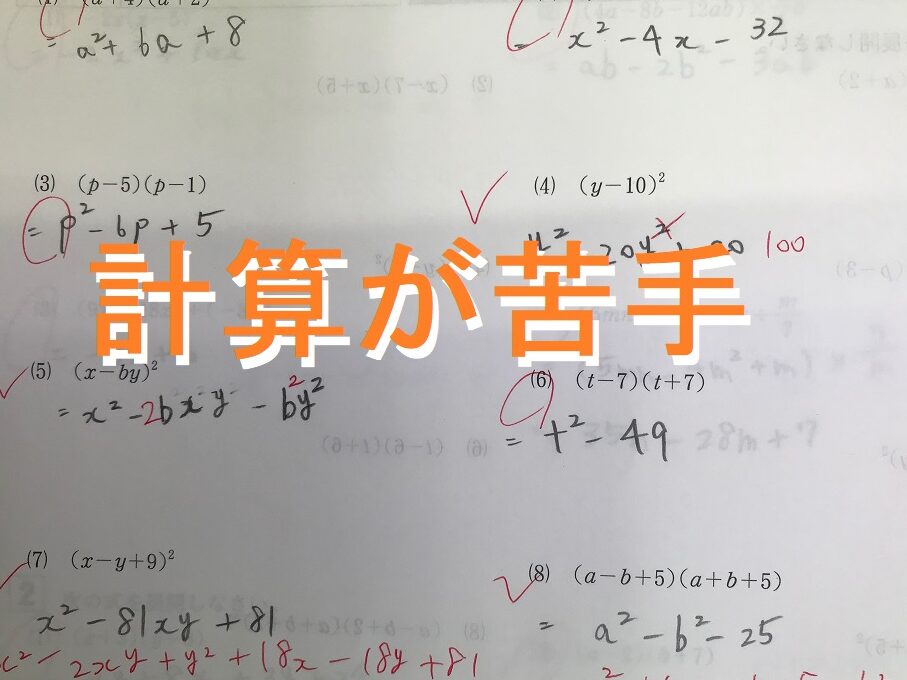 = a² + 6a + 8
= x² - 4x - 32
(3) (p-5)(p-1)
= p² - 6p + 5
(4) (y-10)²
100
計算が苦手
(5) (x-by)²
= x² - 2bxy - b²y²
(6) (t-7)(t+7)
= t² - 49
(7) (x-y+9)²
x² - 81xy + 81
x² - 2xy + y² + 18x - 18y + 81
(8) (a-b+5)(a+b+5)
= a² - b² - 25